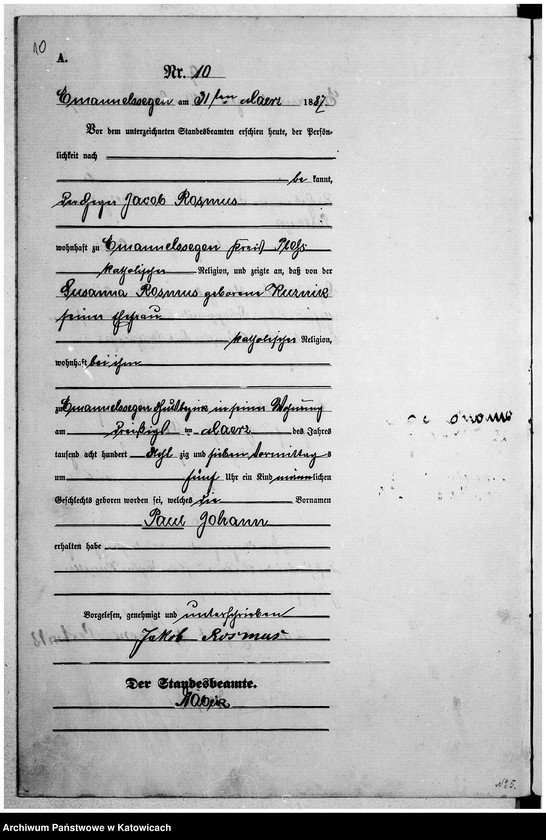 10
A.
Nr. 10
Emanuelssegen am 31ten Maerz 1887.
Vor dem unterzeichneten Standesbeamten erschien heute, der Persön-
lichkeit nach
be kannt,
der Heger Jacob Rosmus
wohnhaft zu Emanuelssegen Kreis Pless
katholischer Religion, und zeigte an, daß von der
Susanna Rosmus geborene
seiner Ehefrau
katholischer Religion,
wohnhaft bei ihm
zu Emanuelssegen Gutsbezirk in seiner Wohnung
am dreißigsten Maerz des Jahres
tausend acht hundert Acht zig und sieben Vormittags
um fünf Uhr ein Kind männlichen
Geschlechts geboren worden sei, welches die Vornamen
Paul Johann
erhalten habe
Vorgelesen, genehmigt und unterschrieben
Jakob Rosmus
Der Standesbeamte.
№ 5.
Archiwum Państwowe w Katowicach